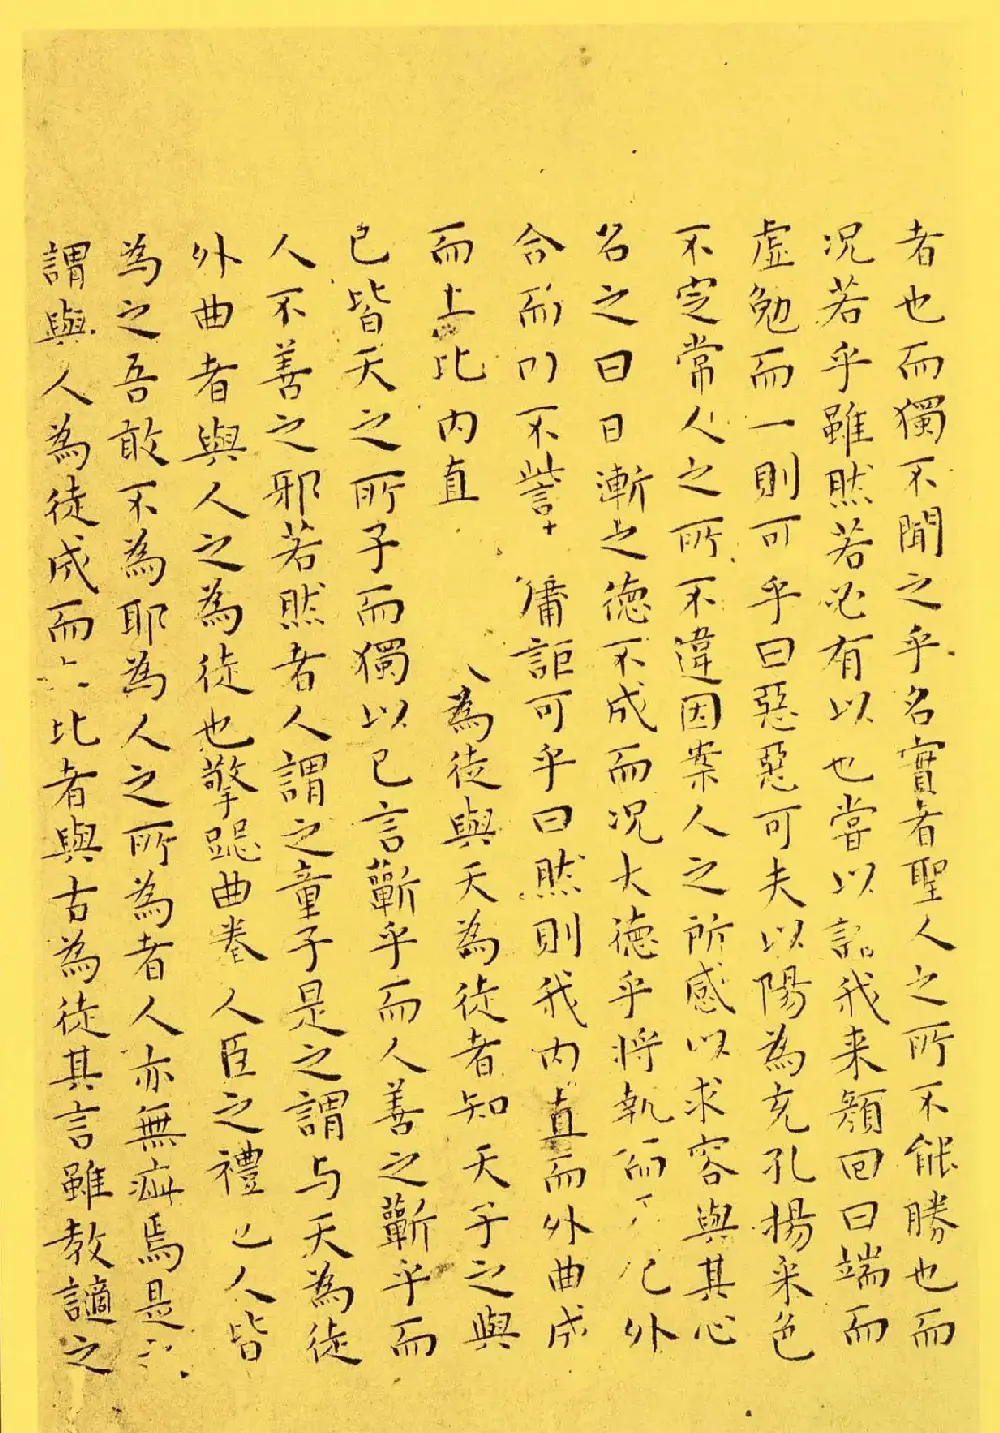 者也而獨不聞之乎名實者聖人之所不能勝也而
况若乎雖然若必有以也嘗以語我来顏回曰端而
虛勉而一則可乎曰惡惡可夫以陽為充孔揚采色
不定常人之所不違因案人之所感以求容與其心
名之曰日漸之德不成而况大德乎將執而外
合而不訾庸詎可乎曰然則我内直而外曲成
而上比内直為徒與天為徒者知天子之與
己皆天之所子而獨以己言蘄乎而人善之蘄乎而
人不善之邪若然者人謂之童子是之謂与天為徒
外曲者與人之為徒也擎跽曲拳人臣之禮人皆
為之吾敢不為耶為人之所為者人亦無疵焉是
謂與人為徒成而比者與古為徒其言雖教讁之